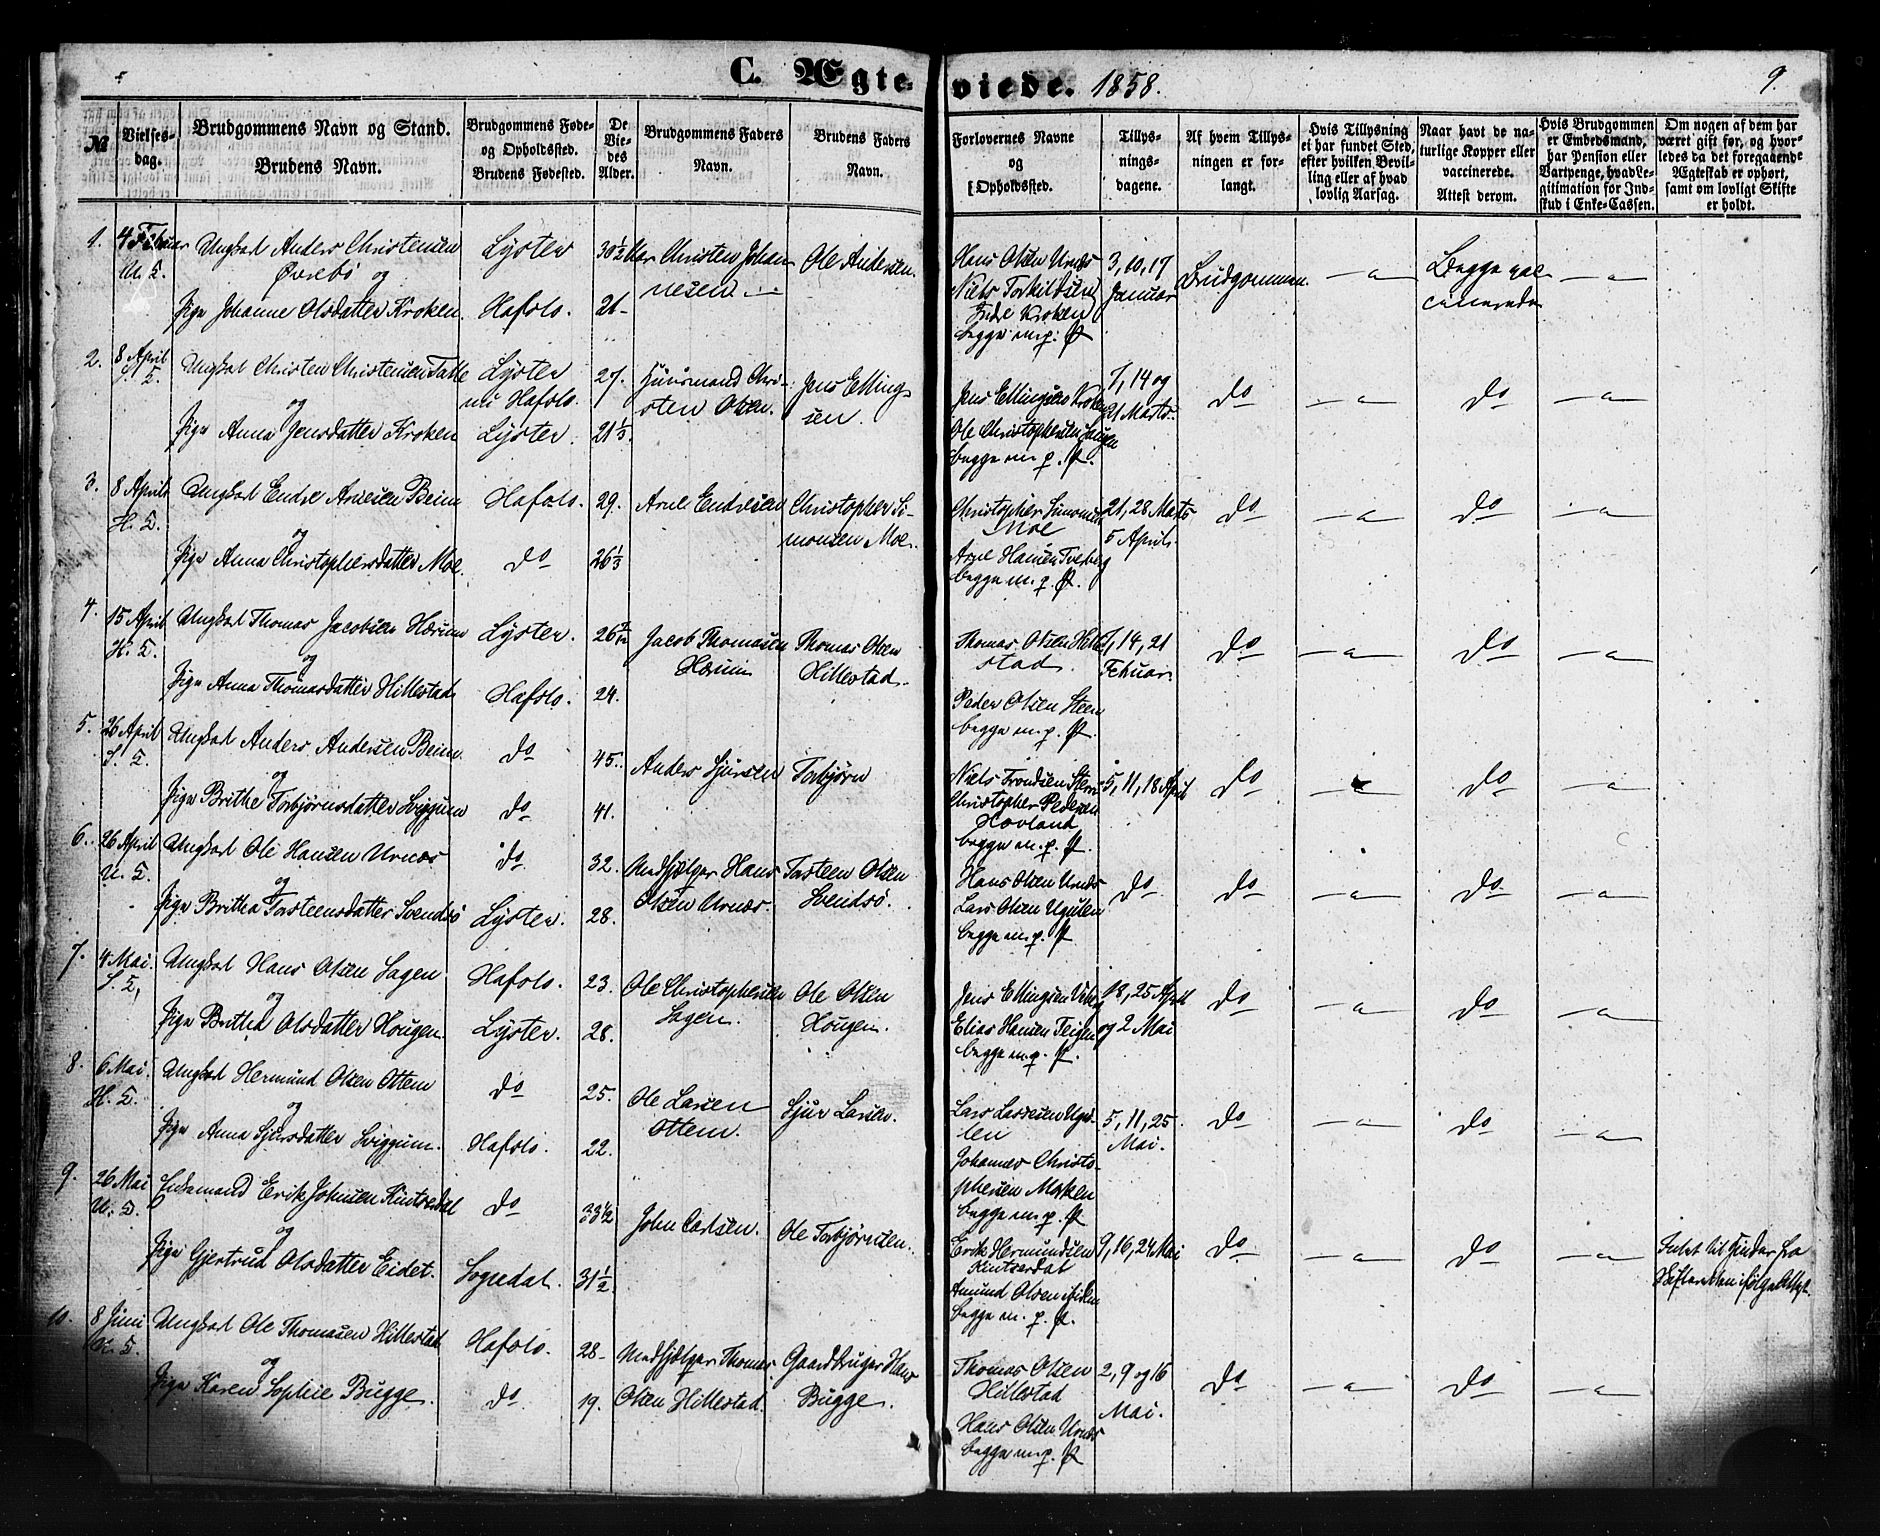 C. Ægteviede. 1858. 9.
№
Vielses-
dag.
Brudgommens Navn og Stand.
Brudens Navn.
Brudgommens Føde-
og Opholdssted.
Brudens Fødested.
De
Vie-
des
Alder.
Brudgommens Faders
Navn.
Brudens Faders
Navn.
Forlovernes Navne
og
Opholdssted.
Tillys-
nings-
dagene.
Af hvem Tillys-
ningen er for-
langt.
Hvis Tillysning
ei har fundet Sted,
efter hvilken Bevil-
ling eller af hvad
lovlig Aarsag.
Naar havt de na-
turlige Kopper eller
vaccinerede.
Attest derom.
Hvis Brudgommen
er Embedsmand,
har Pension eller
Vartpenge, hvad Le-
gitimation for Ind-
skud i Enke-Cassen.
Om nogen af dem har
været gift før, og hvor-
ledes da det foregaaende
Ægteskab er ophørt,
samt om lovligt Skifte
er holdt.
1. 4 Februar Ungkarl Anders Christensen Lyster 30½ Christen Johan- Ole Andersen. Hans Olsen Urnæs 3, 10, 17 Brudgommen — Begge vac- —
Øvrebø og nesen. Niels Torkildsen Januar cinerede
Pige Johanne Olsdatter Kroken. Hafslo. 21 Indre Kroken
begge m. p.
2. 8 April Ungkarl Christen Christensen Lyster 27. Huusmand Chri- Jens Elling- Jens Ellingsen Kroken 7, 14 og do — do —
og Hafslo. sten Olsen. sen. Ole Christophersen 21 Marts.
Pige Anna Jensdatter Kroken Lyster. 21⅓ begge m. p.
3. 8 April Ungkarl Endre Arnesen Beim Hafslo. 29. Arne Endresen Christopher Si- Christopher Simonsen 21, 28 Marts do — do —
H. K. og monsen Moe. Moe 5 April.
Pige Anna Christophersdatter Moe. do 26⅓ Arne Hansen
begge m. p.
4. 15 April Ungkarl Thomas Jacobsen Hærum Lyster. 26 Jacob Thomasen Thomas Olsen Thomas Olsen Hille- 7, 14, 21 do — do —
H. K. og Hærum Hillestad. stad. Februar.
Pige Anna Thomasdatter Hillestad Hafslo. 24. Peder Olsen Steen
begge m. p.
5. 26 April Ungkarl Anders Andersen Beim. do 45. Anders Sjursen Torbjørn Niels Trondsen 5, 11, 18 April do — do —
og Christopher Pedersen
Pige Brithe Torbjørnsdatter Sviggum do. 41. Hovland
begge m. p.
6. 26 April Ungkarl Ole Hansen Urnæs do. 32. Medhjælper Hans Torsteen Olsen Hans Olsen Urnæs do do — do —
U. K. og Olsen Urnæs. Svendsø. Lars Olsen Ugulen
Pige Britha Torsteensdatter Svendsø Lyster. 28. begge m. p.
7. 4 Mai. Ungkarl Hans Olsen Hafslo. 23. Ole Christophersen Ole Olsen Jens Ellingsen 18, 25 April do — do —
og Hougen. Elias Hansen Teigen og 2 Mai
Pige Britha Olsdatter Hougen. Lyster. 28. begge m. p.
8. 6 Mai. Ungkarl Hermund Olsen Ottem do 25. Ole Larsen Sjur Larsen. Lars Lassesen Ugu- 5, 11, 25 do — do —
H. K. og Ottem. len Mai.
Pige Anna Sjursdatter Sviggum. Hafslo. 22. Johannes Christo-
phersen
begge m. p.
9. 26 Mai Enkemand Erik Johnsen Kintsedal do 33½ John Carlsen. Ole Torbjørnsen. Erik Hermundsen 9, 16, 24 Mai do — do —
U. K. og Kintsedal
Pige Gjertrud Olsdatter Eidet. Sogndal. 31½ Amund Olsen
begge m. p.
10. 8 Juni Ungkarl Ole Thomasen Hillestad Hafslo. 28 Medhjælper Thomas Gaardbruger Hans Thomas Olsen 2, 9 og 16 do — do —
og Olsen Hillestad. Bugge. Hillestad Mai.
Pige Karen Sophie Bugge. do. 19. Hans Olsen Urnæs
begge m. p.